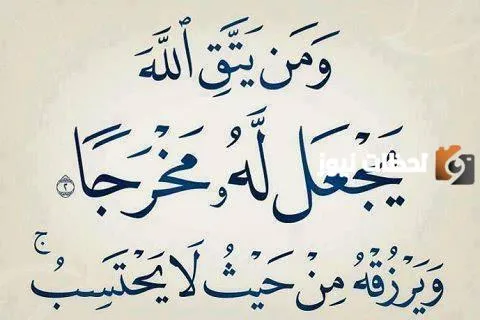 وَمَن يَتَّقِ ٱللَّهَ
يَجْعَل لَّهُۥ مَخْرَجًا ٢
لحظات نيوز
وَيَرْزُقْهُ مِنْ حَيْثُ لَا يَحْتَسِبُ ۚ